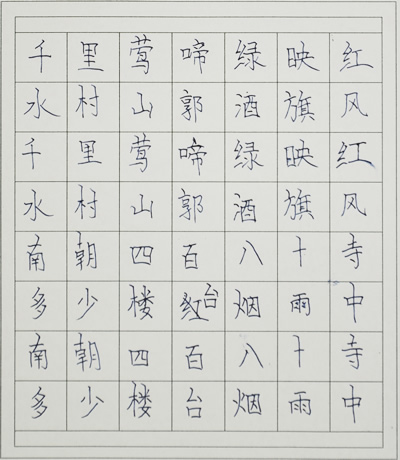 千里莺啼绿映红
水村山郭酒旗风
千里莺啼绿映红
水村山郭酒旗风
南朝四百八十寺
多少楼台烟雨中
南朝四百八十寺
多少楼台烟雨中